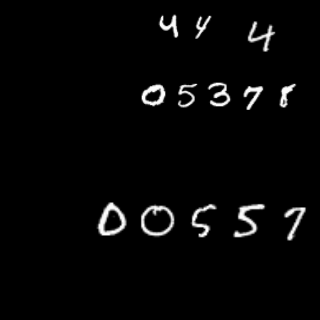 44 4
05378
00557